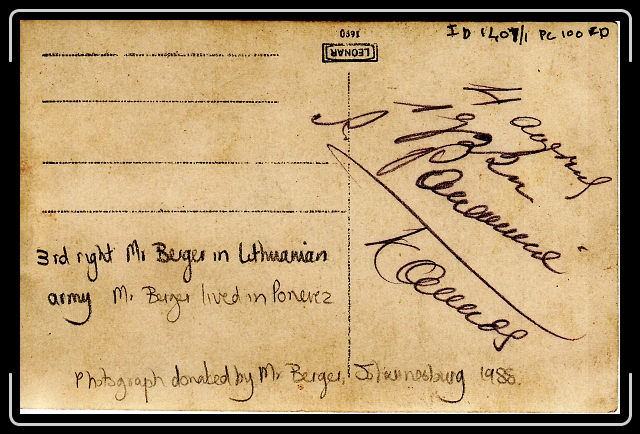 ID 1407/1 PC 100 ED
LEONAR
Kaunas
3rd right Mr Berger in Lithuanian
army Mr Berger lived in Ponevez
Photograph donated by Mr Berger, Johannesburg 1988.